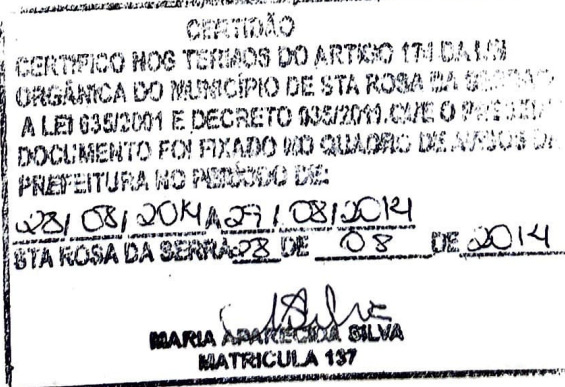 CERTIDÃO
CERTIFICO NOS TERMOS DO ARTIGO 174 DA LEI
ORGÂNICA DO MUNICÍPIO DE STA ROSA DA SERRA
A LEI 635/2001 E DECRETO 035/2011. QUE O PRESENTE
DOCUMENTO FOI FIXADO NO QUADRO DE AVISOS DA
PREFEITURA NO PERÍODO DE:
28/08/2014 A 29/08/2014
STA ROSA DA SERRA 28 DE 08 DE 2014
MARIA APARECIDA SILVA
MATRICULA 137